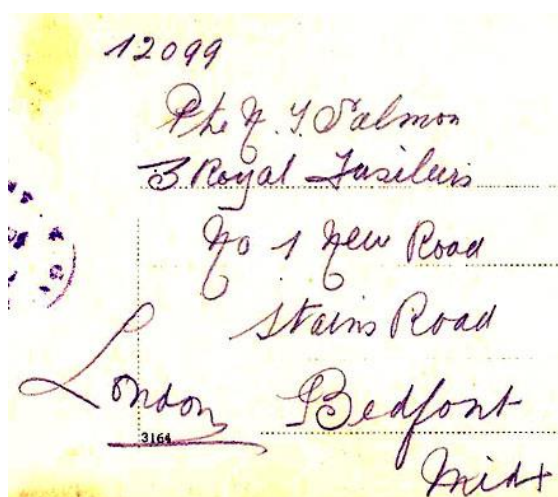 12099
Pte H. J. Salmon
3 Royal Fusileirs
No 1 New Road
Stains Road
London
Bedfont
Midx
3164